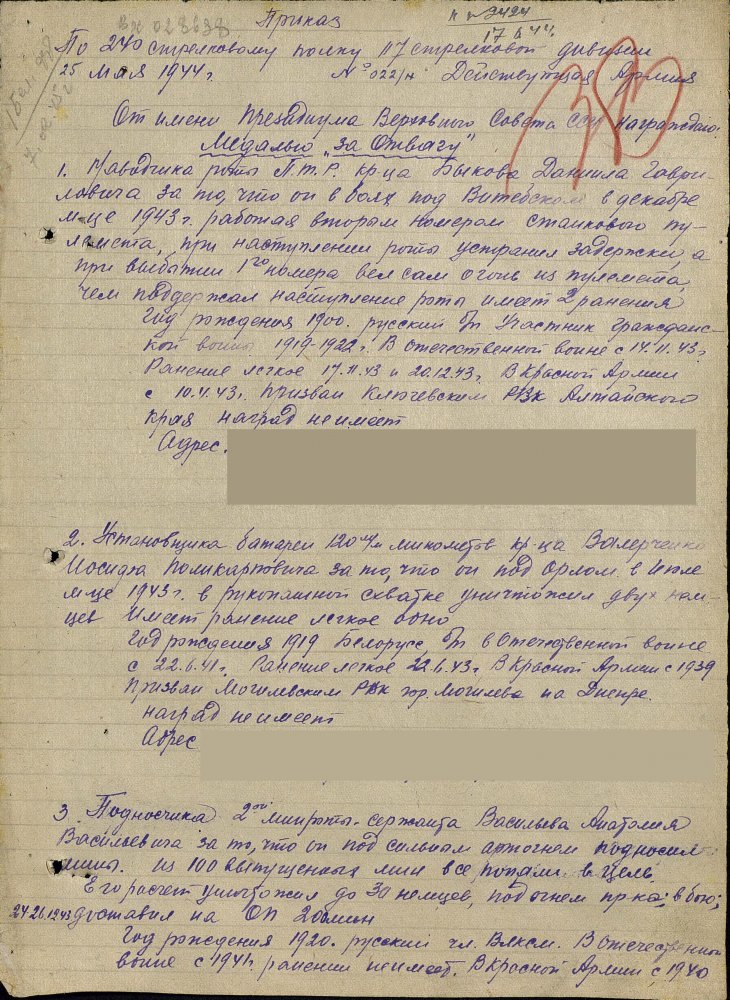 вх 023638
Приказ
17 6 44
По 240 стрелковому полку 117 стрелковой дивизии
25 Мая 1944 г. № 022/н Действующая Армия
От имени Президиума Верховного Совета ССР награждаю
Медалью „за Отвагу"
1. Наводчика роты П.т.Р. кр-ца Быкова Даниила Гаври-
ловича за то, что он в боях под Витебском в декабре
м-це 1943 г. работая вторым номером станкового пу-
лемета, при наступлении роты устранял задержки, а
при выбытии 1го номера вел сам огонь из пулемета,
чем поддержал наступление роты имеет 2 ранения
Год рождения 1900. русский б/п Участник Гражданс-
кой войны 1919-1922 г. В Отечественной войне с 14.11.43 г.
Ранение легкое 17.11.43 и 20.12.43 г. В Красной Армии
с 10.4.43 г. Призван Ключевским РВК Алтайского
края наград не имеет
Адрес.
2. Установщика батареи 120 м/м минометов кр-ца Валерченко
Иосифа Поликарповича за то, что он под Орлом в Июле
м-це 1943 г. в рукопашной схватке уничтожил двух нем-
цев Имеет ранение легкое одно
Год рождения 1919 Белорусс, б/п в Отечественной войне
с 22.6.41 г. Ранение легкое 22.6.43 г. В Красной Армии с 1939
Призван Могилевским РВК гор. Могилева на Днепре.
наград не имеет
Адрес
3. Подносчика 2ой минроты-сержанта Васильева Анатолия
Васильевича за то, что он под сильным артогнем подносил
мины. из 100 выпущенных мин все попали в цель
Его расчет уничтожил до 30 немцев, под огнем пр-ка; в бою;
24.26.12.43 доставил на ОП 200 мин
Год рождения 1920. русский чл. Влксм. В Отечественной
войне с 1941 г. ранений не имеет. В Красной Армии с 1940